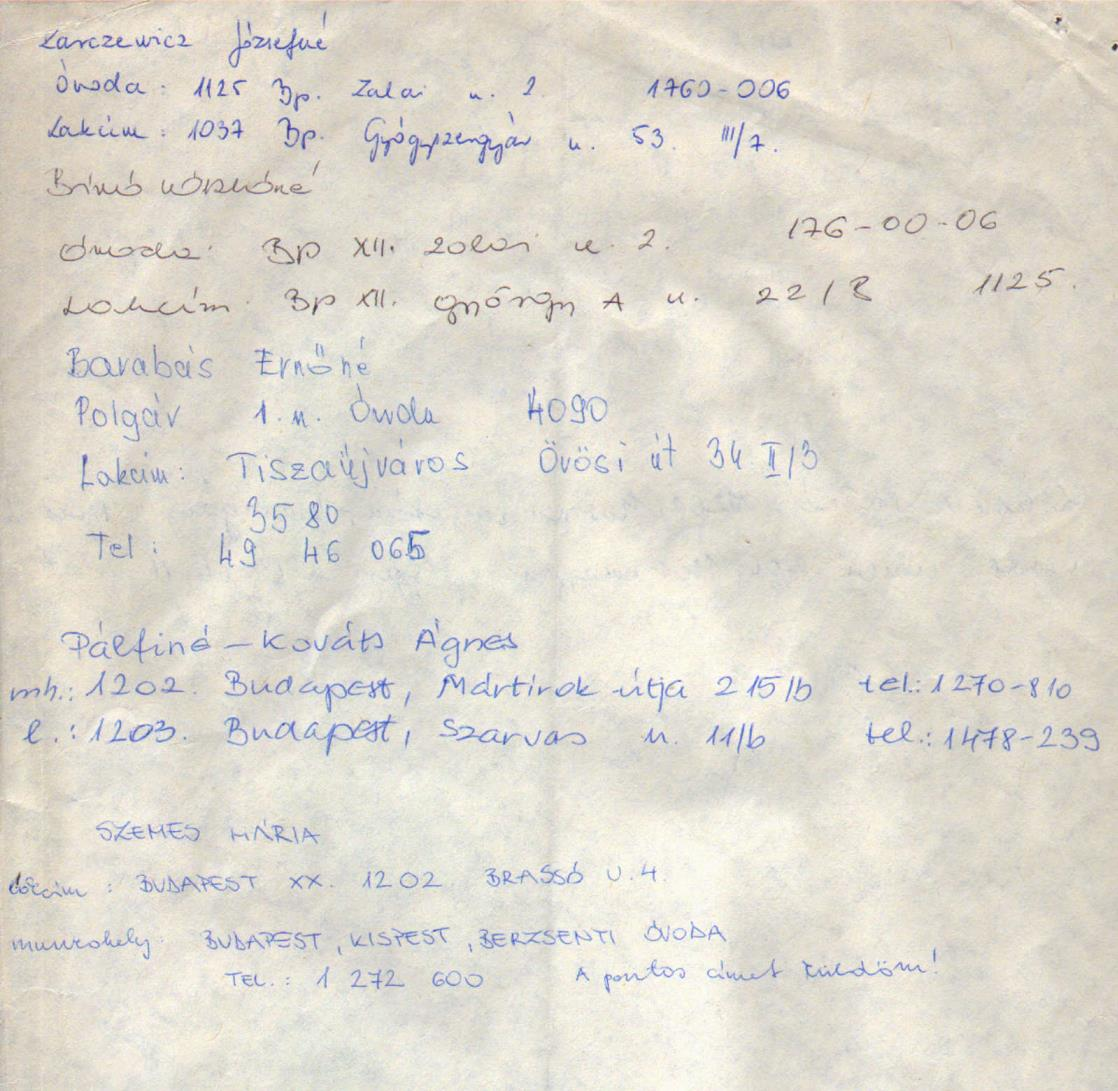 Karczewicz Józsefné
Óvoda: 1125 Bp. Zalai u. 2. 1760-006
Lakcím: 1037 Bp. Gyógyszergyár u. 53. III/7.
Óvoda: Bp XII. Zalai u. 2. 176-00-06
Lakcím Bp XII. György A u. 22/B 1125.
Barabás Ernőné
Polgár 1. u. Óvoda 4090
Lakcím: Tiszaújváros Örösi út 34 II/3
3580
Tel: 49 46 065
Pálfiné - Kováts Ágnes
mh.: 1202. Budapest, Mártírok útja 215/b tel.: 1270-810
l.: 1203. Budapest, Szarvas u. 11/b tel.: 1478-239
SZEMES MÁRIA
lakcím: BUDAPEST XX. 1202 BRASSÓ U. 4.
munkahely: BUDAPEST, KISPEST, BERZSENYI ÓVODA
TEL.: 1 272 600 A pontos címet küldöm!